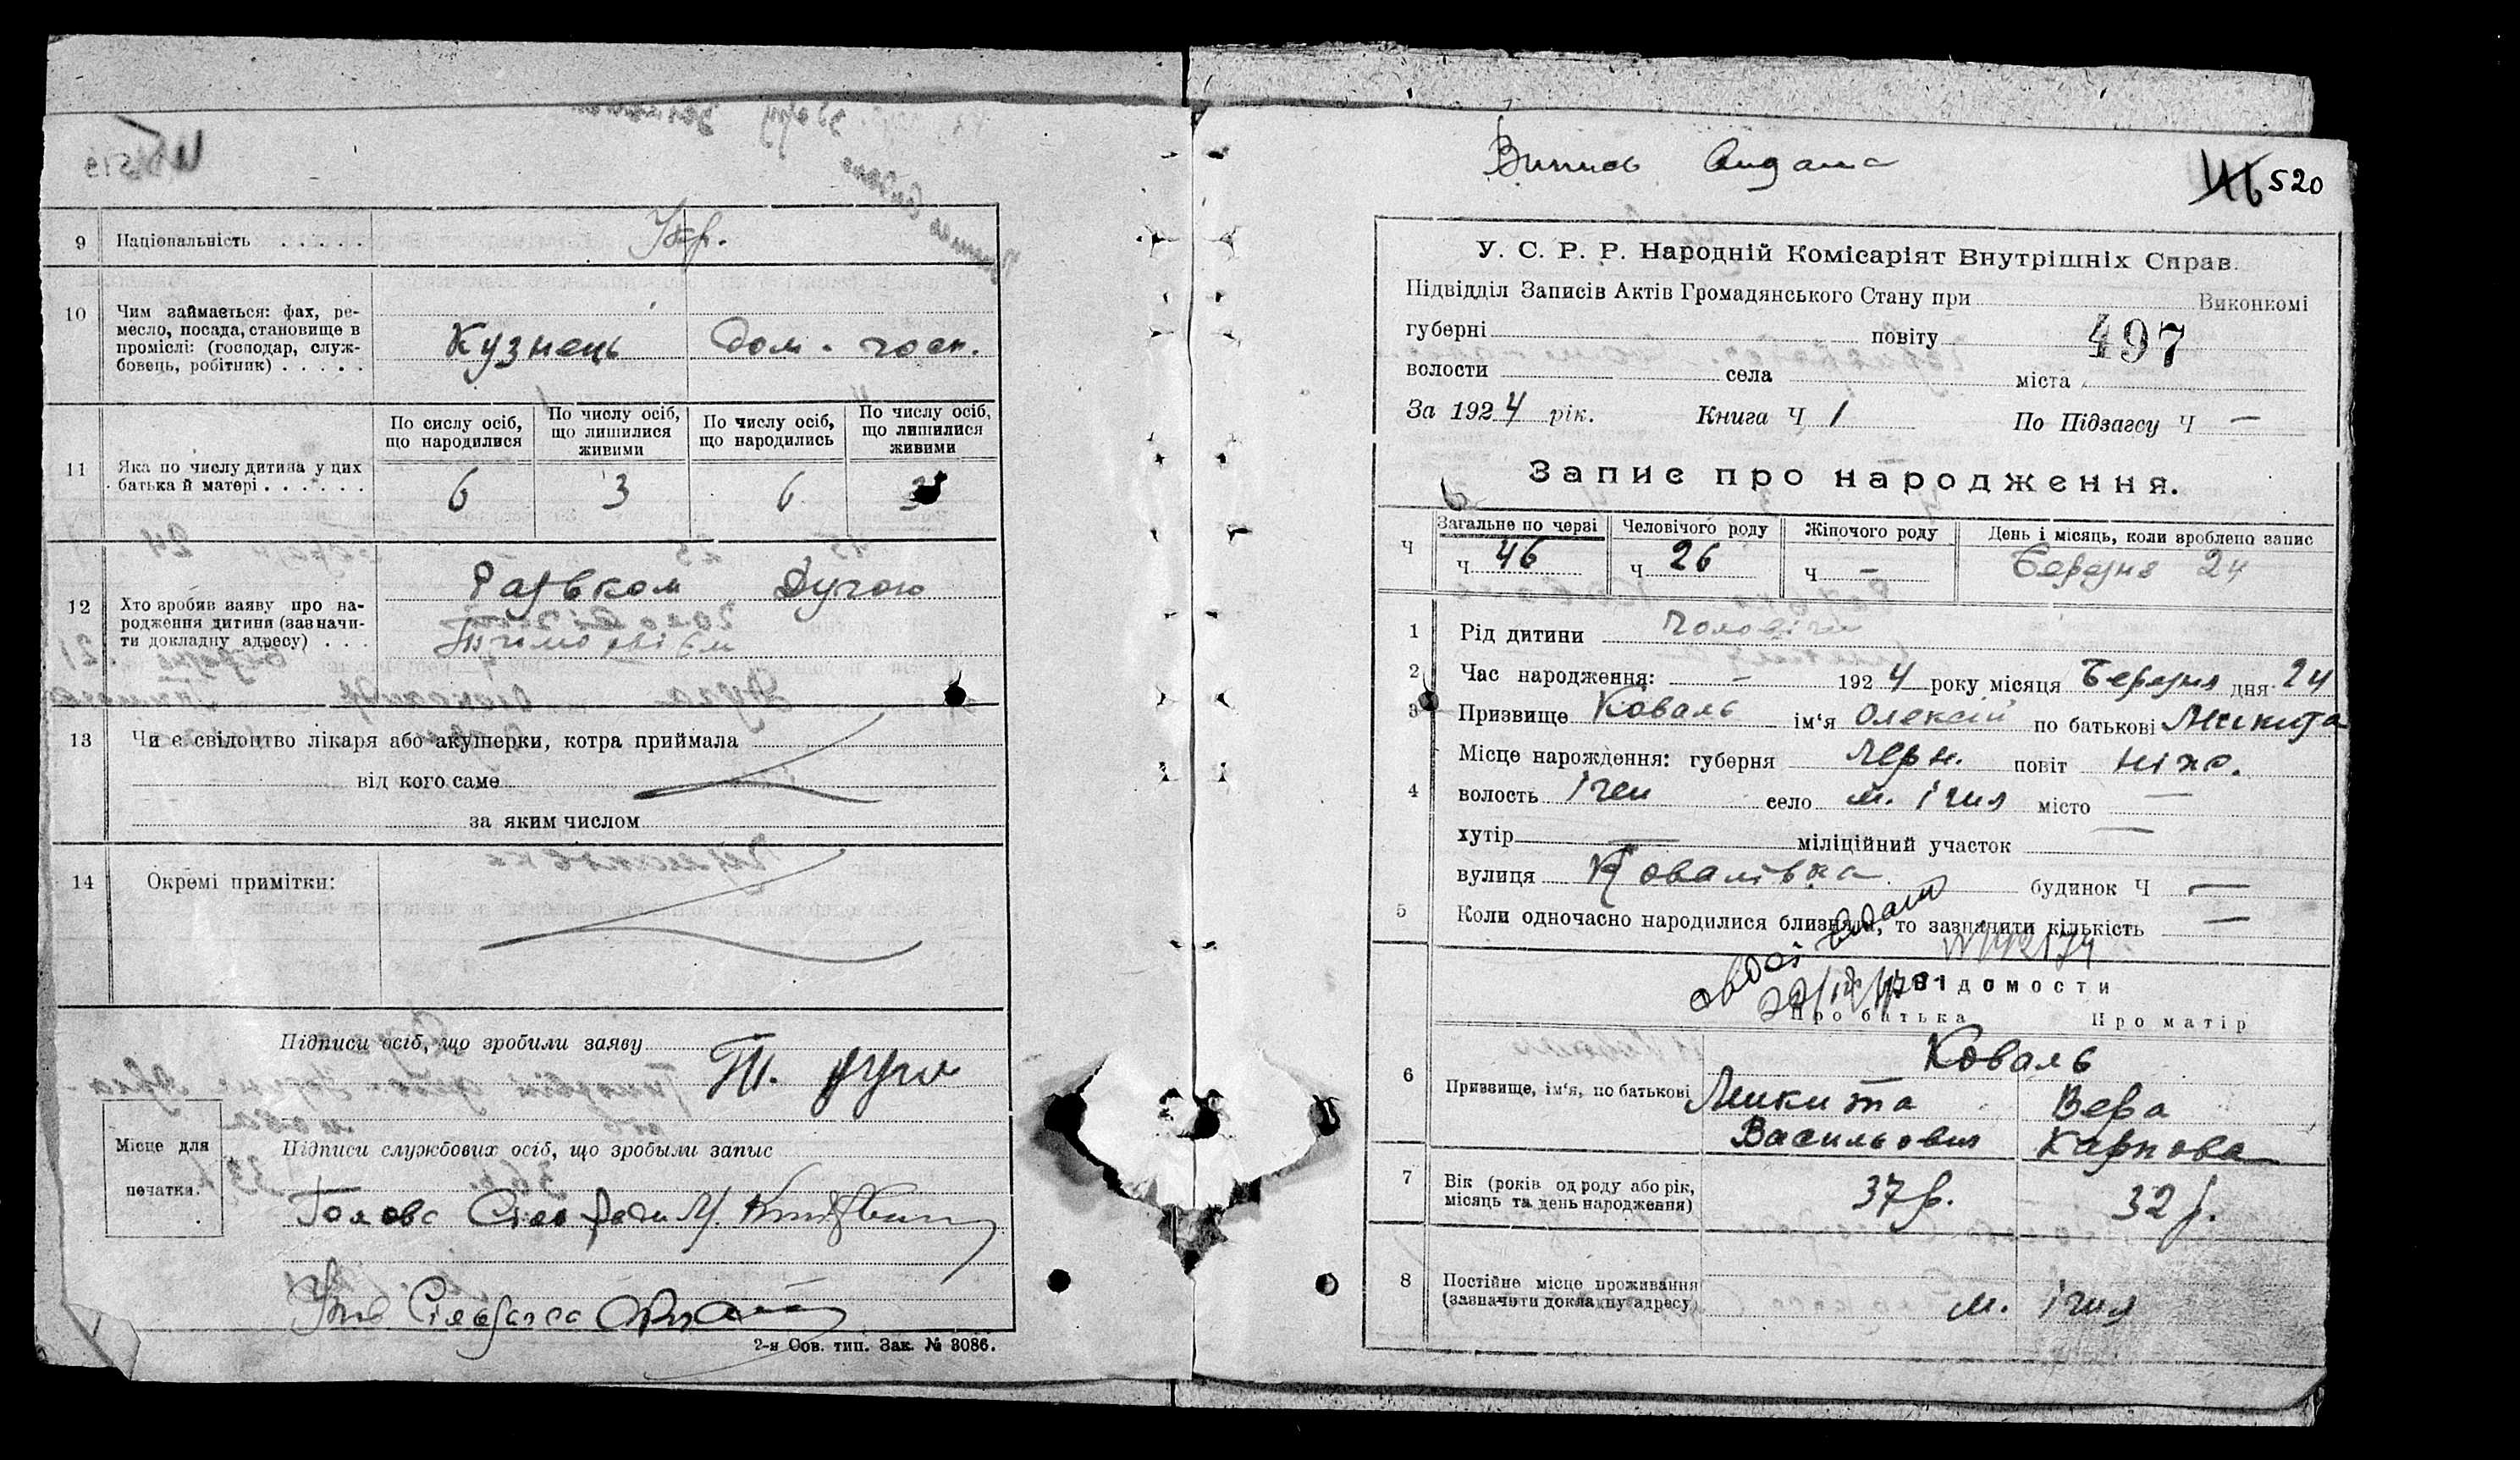 9 Національність . . . . . Укр.
10 Чим займається: фах, ре-
месло, посада, становище в
проміслі: (господар, служ-
бовець, робітник) . . . . .
Кузнець Дом. госп.
По сислу осіб, що народилися
По числу осіб, що лишилися живими
По числу осіб, що народились
По числу осіб, що лишилися живими
11 Яка по числу дитина у цих
батька й матері . . . . . .
6 3 6 3
12 Хто зробив заяву про на-
родження дитини (зазначи-
ти докладну адресу) . . .
Дугою
13 Чи є свідоцтво лікаря або акушерки, котра приймала
від кого саме
за яким числом
14 Окремі примітки:
Підписи осіб, що зробили заяву
Місце для
печатки.
Підписи службових осіб, що зробыли запис
Голова М.
2-я Сов. тип. Зак. № 3086.
Випись видана
46 520
У. С. Р. Р. Народній Комісаріят Внутрішніх Справ.
Підвідділ Записів Актів Громадянського Стану при Виконкомі
губерні повіту 497
волости села міста
За 1924 рік. Книга Ч 1 По Підзагсу Ч —
Запис про народження.
Ч
Загальне по черзі Человічого роду Жіночого роду День і місяць, коли зроблено запис
Ч 46 Ч 26 Ч — Березня 24
1 Рід дитини Чоловічи
2 Час народження: — 1924 року місяця Березня дня 24
3 Призвище Коваль ім‘я Олексій по батькові Микита
Місце нарождення: губерня Черн. повіт Ніж.
4 волость Ічен село м. Ічня місто —
хутір — міліційний участок —
вулиця Ковалівка будинок Ч —
5 Коли одночасно народилися близнята, то зазначити кількість —
Відомости
Про батька Про матір
6 Призвище, ім‘я, по батькові
Коваль
Микита Вера
Васильович Карпова
7 Вік (років од роду або рік,
місяць та день народження)
37 р. 32 р.
8 Постійне місце проживання
(зазначити докладну адресу)
м. Ічня